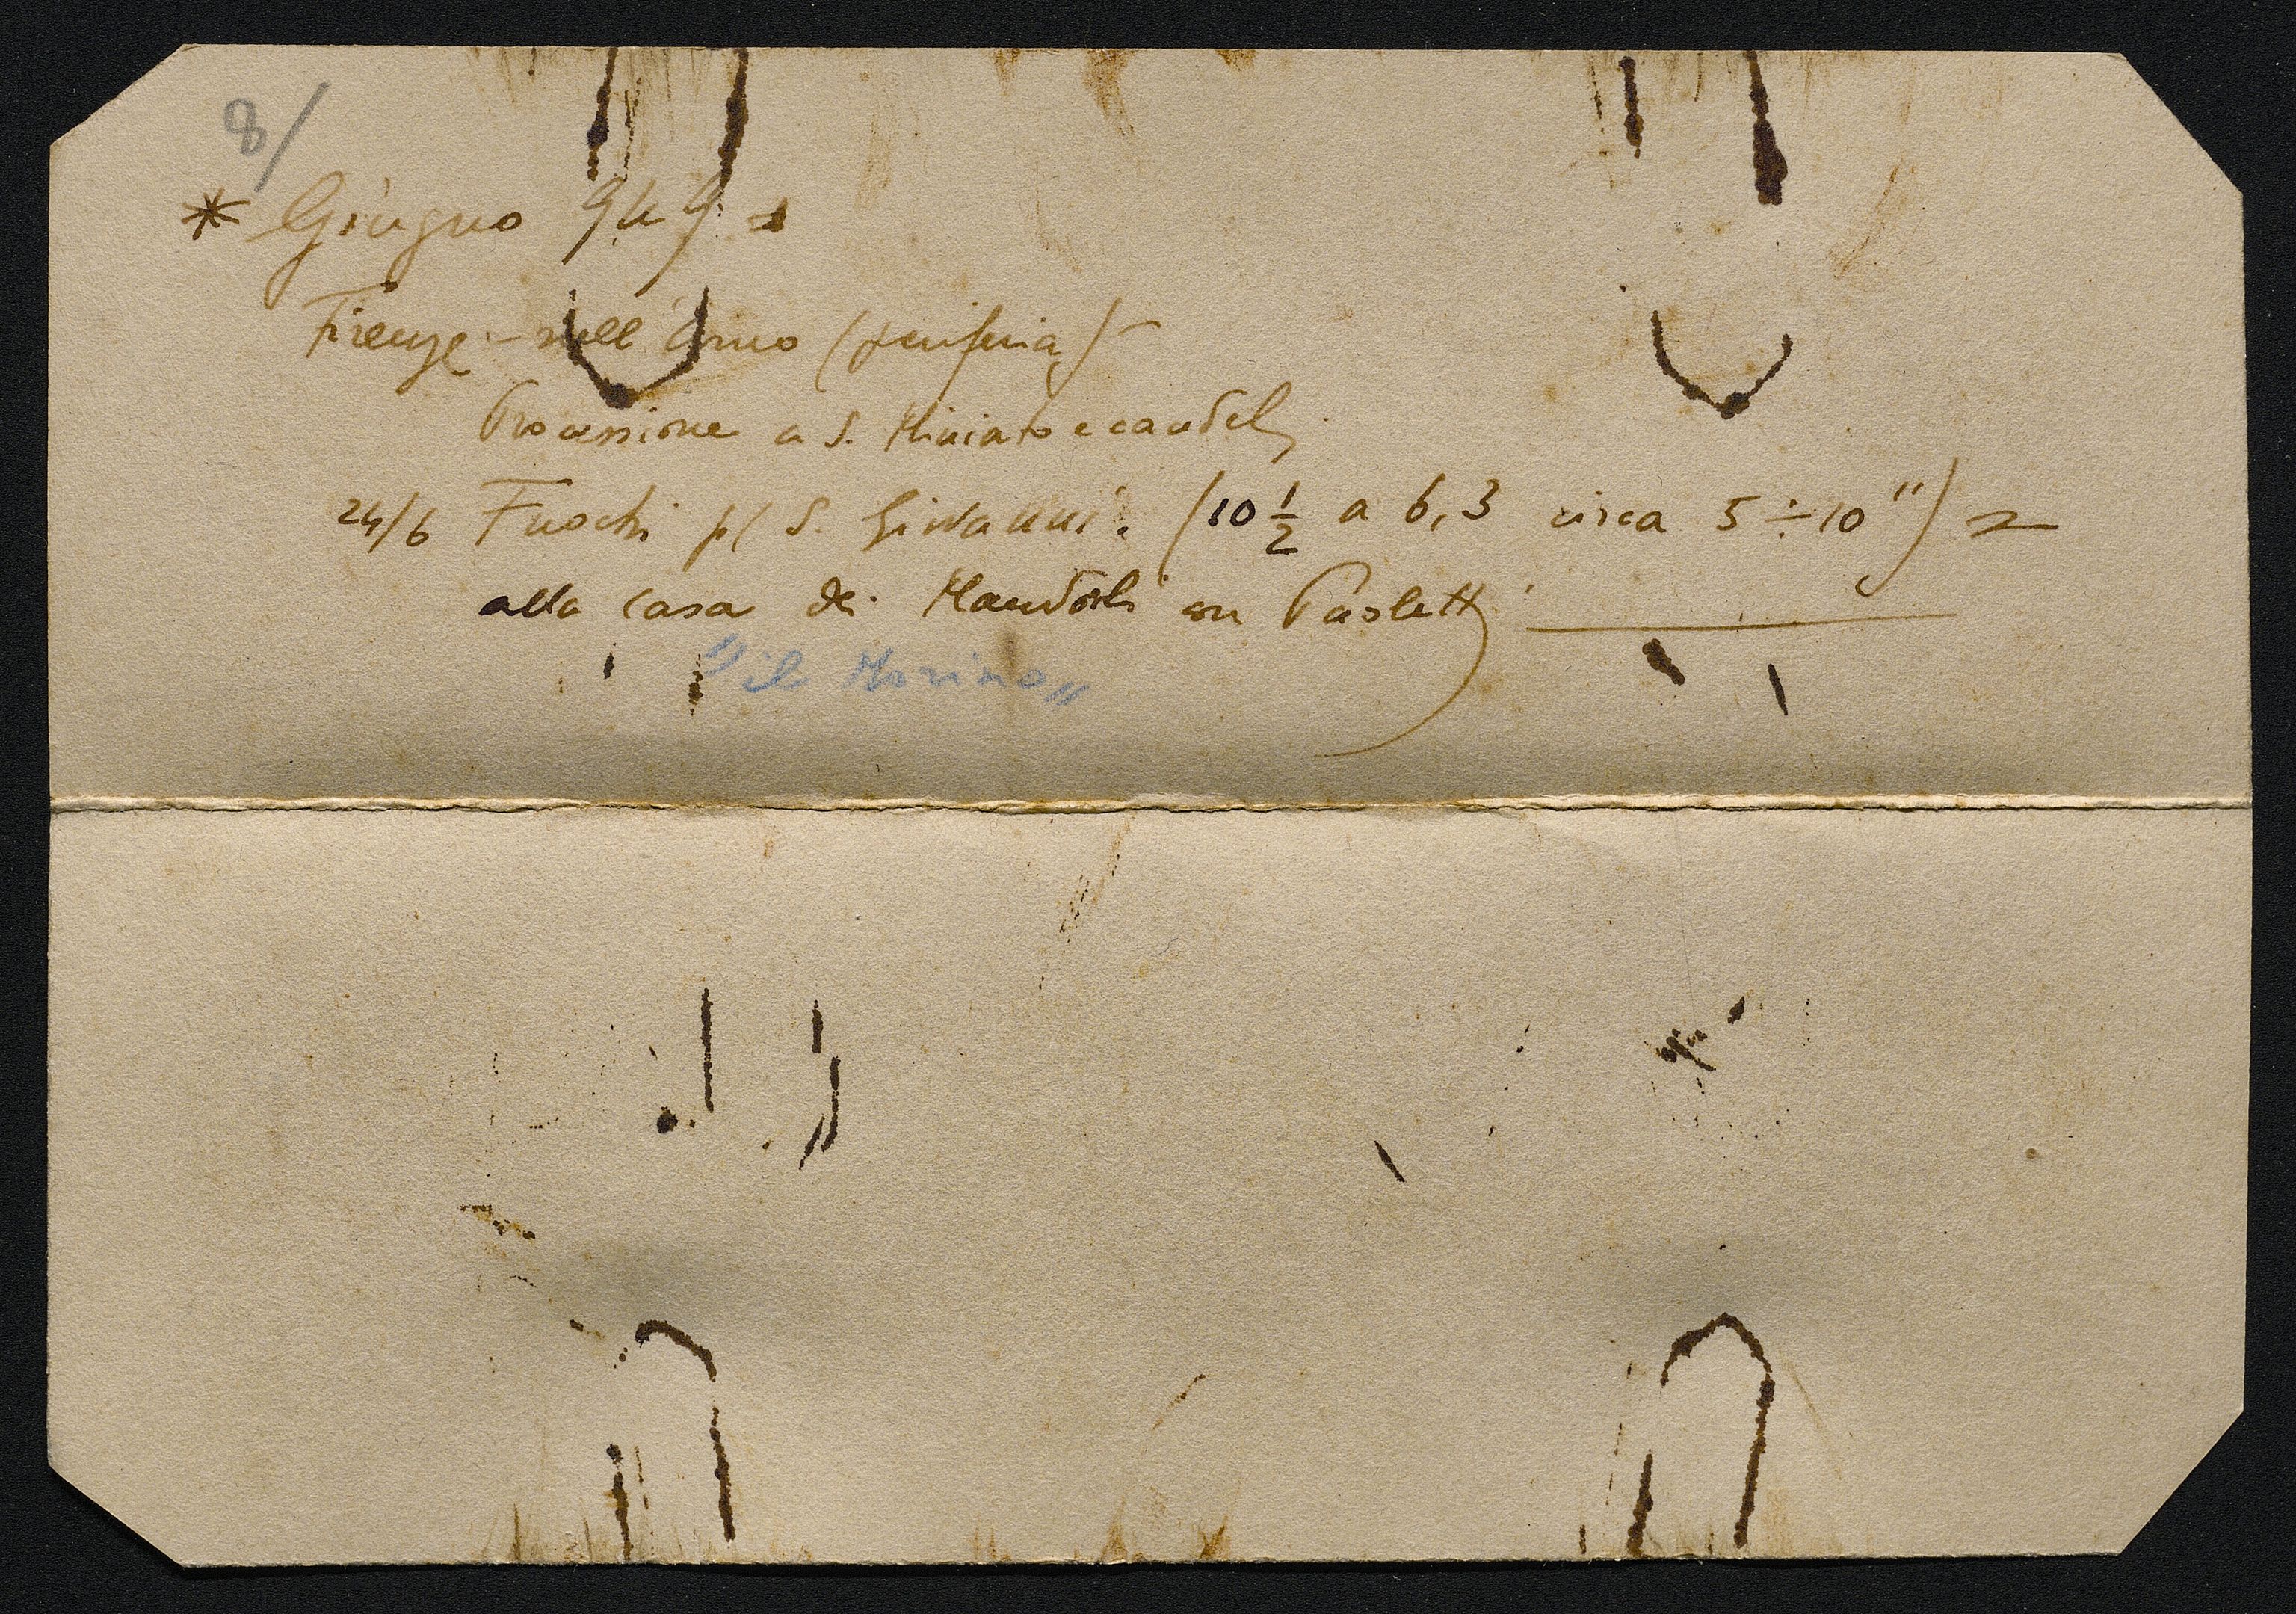 8/
* Giugno 949
Firenze - sull'Arno (periferia) -
Processione a S. Miniato e candel
24/6 Fuochi p/ S. Giovanni. (10 1/2 a 6,3 circa 5÷10")
alla casa di con Paoletti
"il Morino"